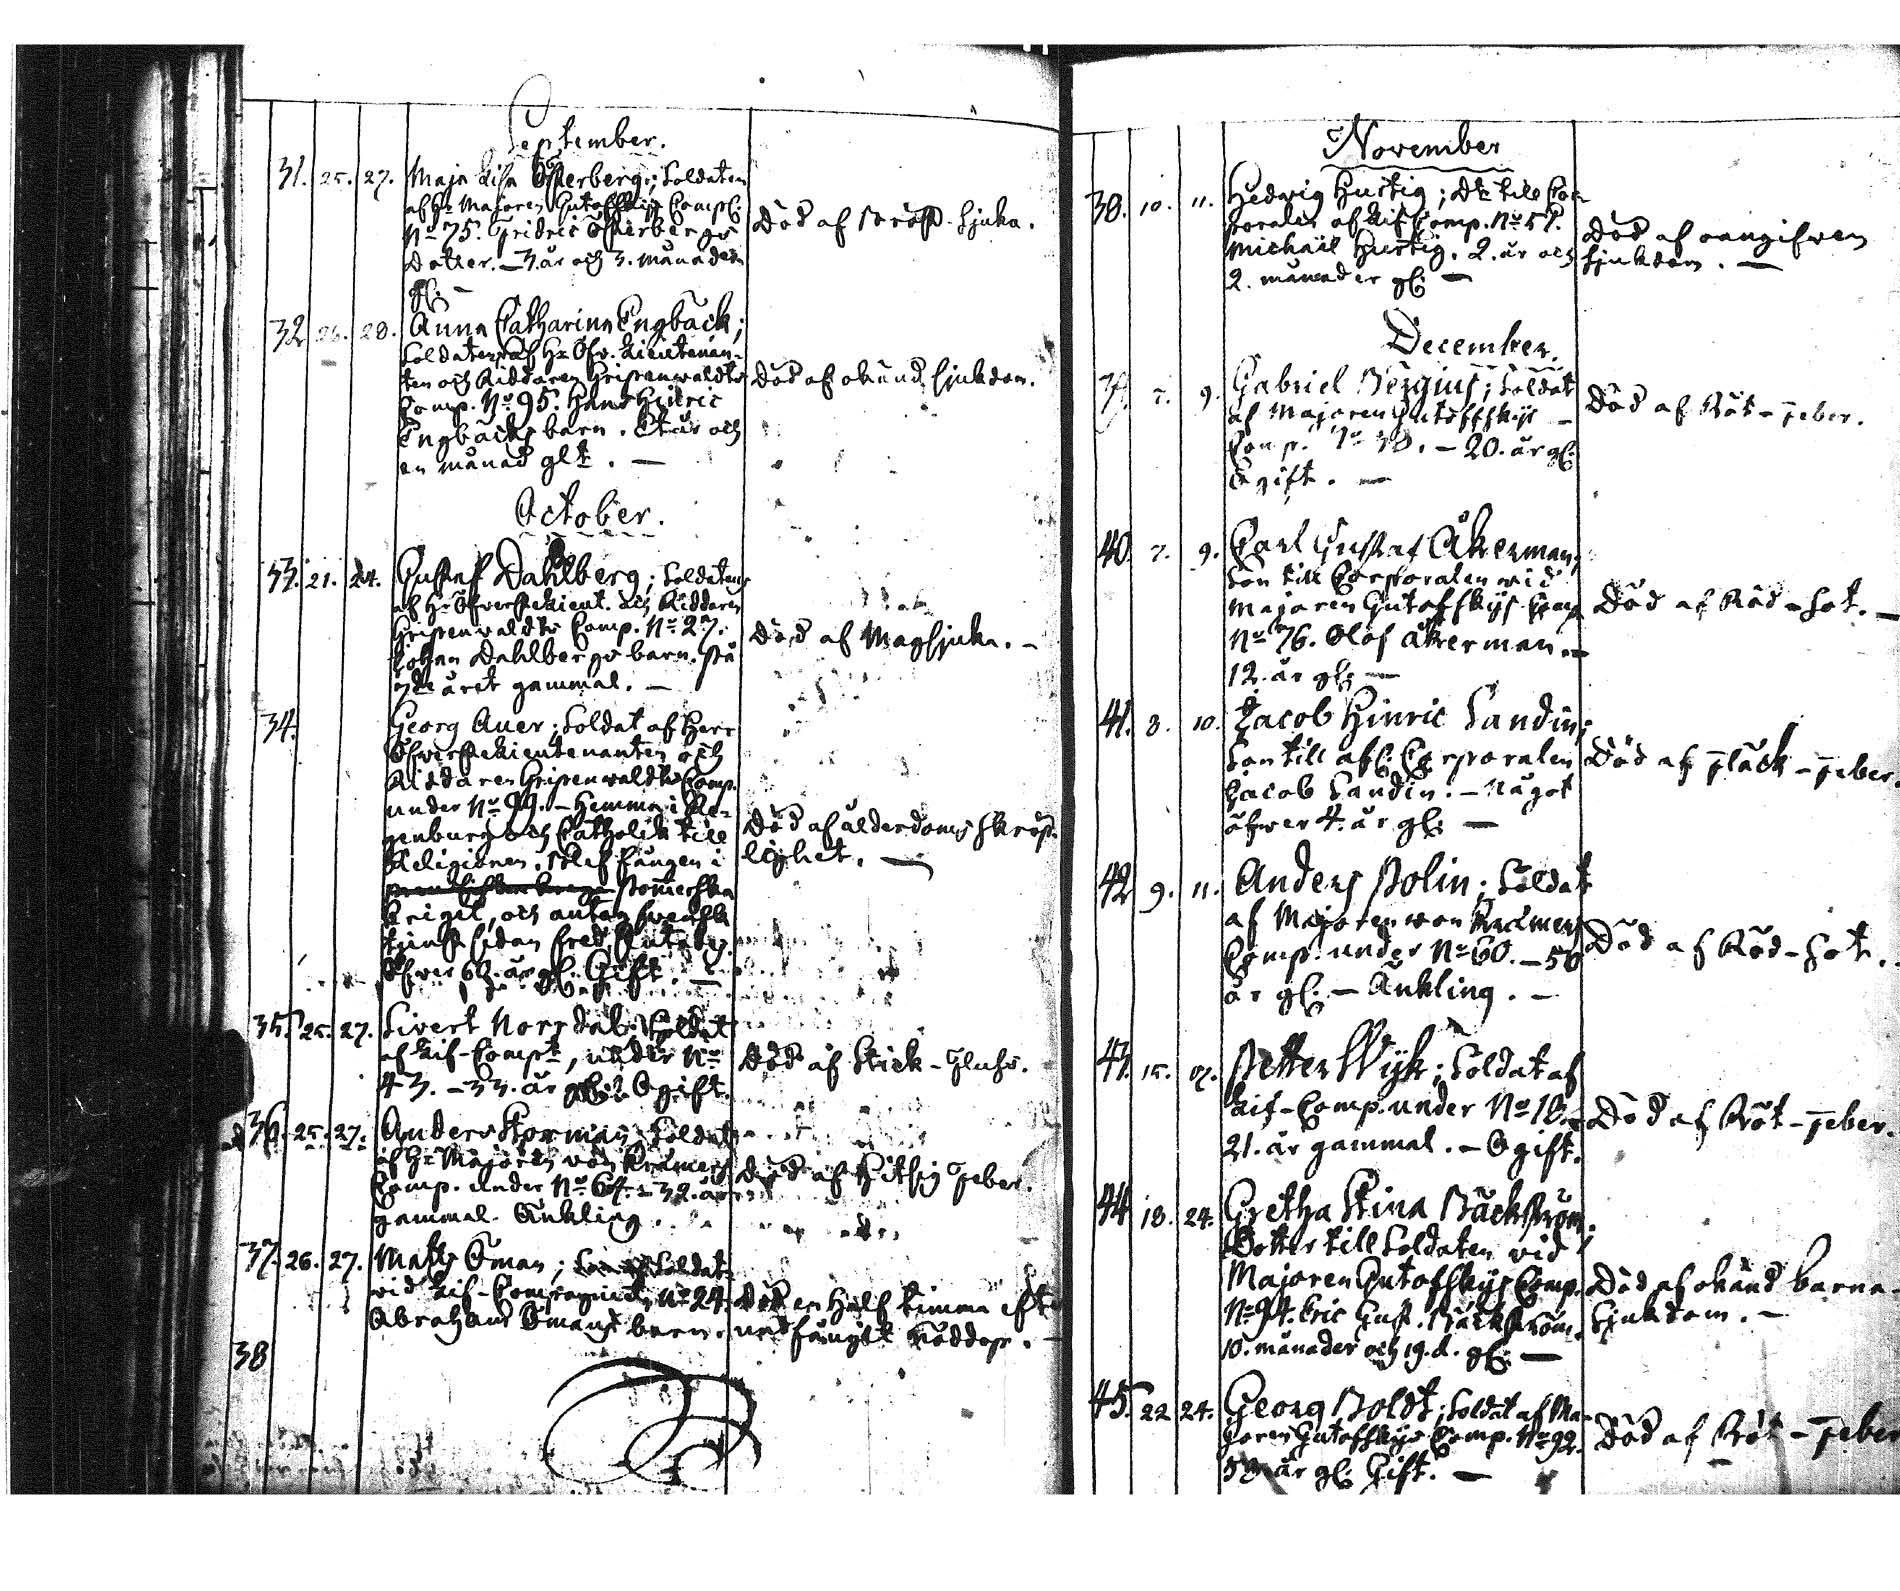 September.
31. 25. 27. Maja Lisa Österberg; Soldaten
af Hr Majoren Gutoffskijs Comp:
No 75. Fridric Österbergs
Dotter. – 3. år och 3. månader
gl: –
Död af bröst-siuka.
32 26. 28. Anna Catharina Engbäck;
Soldatens af Hr Öfv. Lieutenan-
ten och Riddaren Gripenwaldts
Comp. No 95. Hans Hinric
Engbäcks barn. Ett år och
en månad glt. –
Död af okänd siukdom.
October.
33. 21. 24. Gustaf Dahlberg; Soldatens
af Hr Öfverste Lieut. och Riddaren
Gripenwaldts Comp. No 27.
Johan Dahlbergs barn. på
7de året gammal. –
Död af Magsjuka. –
34. Georg Auer; Soldat af Herr
Öfverste Lieutenanten och
Riddaren Gripenwaldts Comp.
under No 99. – Hemma i Re-
genburg och Catholik till
Religionen. blef fången i
Pommerska
kriget, och antog Svensk
tjenst sedan fred slutades.
Öfver 60. år gl. Gift. –
Död af ålderdoms skröp-
lighet. –
35. 25. 27. Sivert Norrdal; Soldat
af Lif-Compt, under No
43. – 33. år gl: Ogift.
Död af Stick-Fluss.
36. 25. 27. Anders Storman; Soldat
af Hr Majoren von Kræmers
Comp. under No 64. – 32. år
gammal. Änkling.
Död af Hitsig Feber.
37. 26. 27. Matts Öman; Soldat
vid Lif-Compagniet, No 24.
Abraham Ömans barn.
Död en half timma efter
undfångit Nöddop. –
38
November
38. 10. 11. Hedvig Hurtig; Dr till Cor-
poralen af Lif Comp. No 51.
Michaël Hurtig. 2. år och
2. månader gl: –
Död af oangifven
siukdom. –
December.
39. 7. 9. Gabriel Bergius; Soldat
af Majoren Gutoffskijs –
Comp. No – 20. år gl:
Ogift. –
Död af Röt-Feber.
40. 7. 9. Carl Gustaf Åkerman;
Son till Corporalen vid
Majoren Gutofskijs Comp
No 76. Olof Åkerman. –
12. år gl: –
Död af Röd-Sot. –
41. 8. 10. Jacob Hinric Sandin;
Son till afl: Corporalen
Jacob Sandin. – Något
öfwer 4. år gl: –
Död af Fläck-Feber.
42 9. 11. Anders Bolin; Soldat
af Majoren von Kræmers
Comp. under No 60. – 50
år gl: – Änkling. –
Död af Röd-Sot.
43. 15. 17. Petter Wijk; Soldat af
Lif-Comp. under No 10. –
21. år gammal. – Ogift.
Död af Röt-Feber.
44 18. 24. Gretha Stina Bäckström.
Dotter till Soldaten vid
Majoren Gutofskijs Comp.
No 94. Eric Gust. Bäckström.
10. månader och 19. d. gl: –
Död af okänd barna-
siukdom. –
45. 22 24. Georg Boldt; Soldat af Ma-
joren Gutofskijs Comp. No 92.
år gl: Gift. –
Död af Röt-Feber